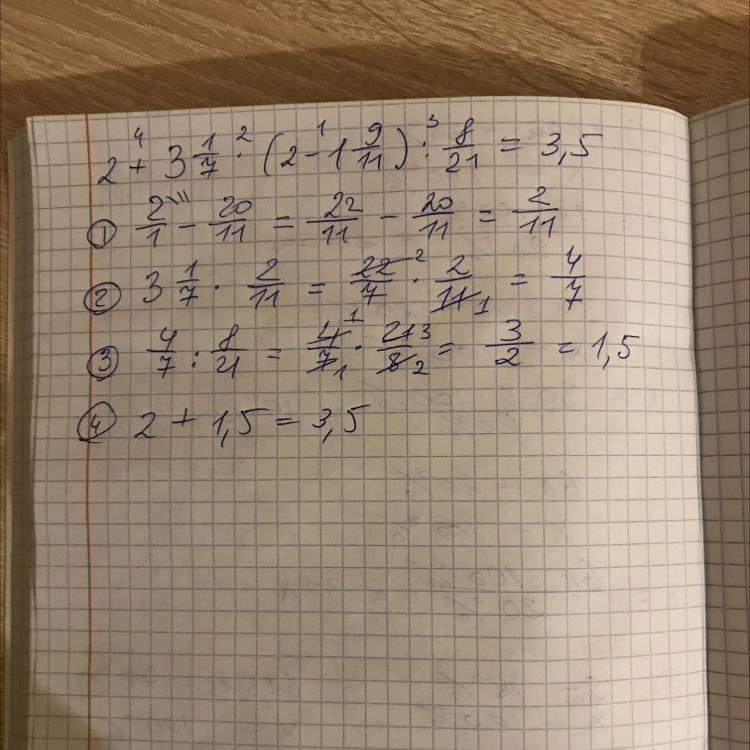 2 + 3 1/7 · (2 - 1 9/11) : 8/21 = 3,5
① 2/1 - 20/11 = 22/11 - 20/11 = 2/11
② 3 1/7 · 2/11 = 22/7 · 2/11 = 4/7
③ 4/7 : 8/21 = 4/7 · 21/8 = 3/2 = 1,5
④ 2 + 1,5 = 3,5